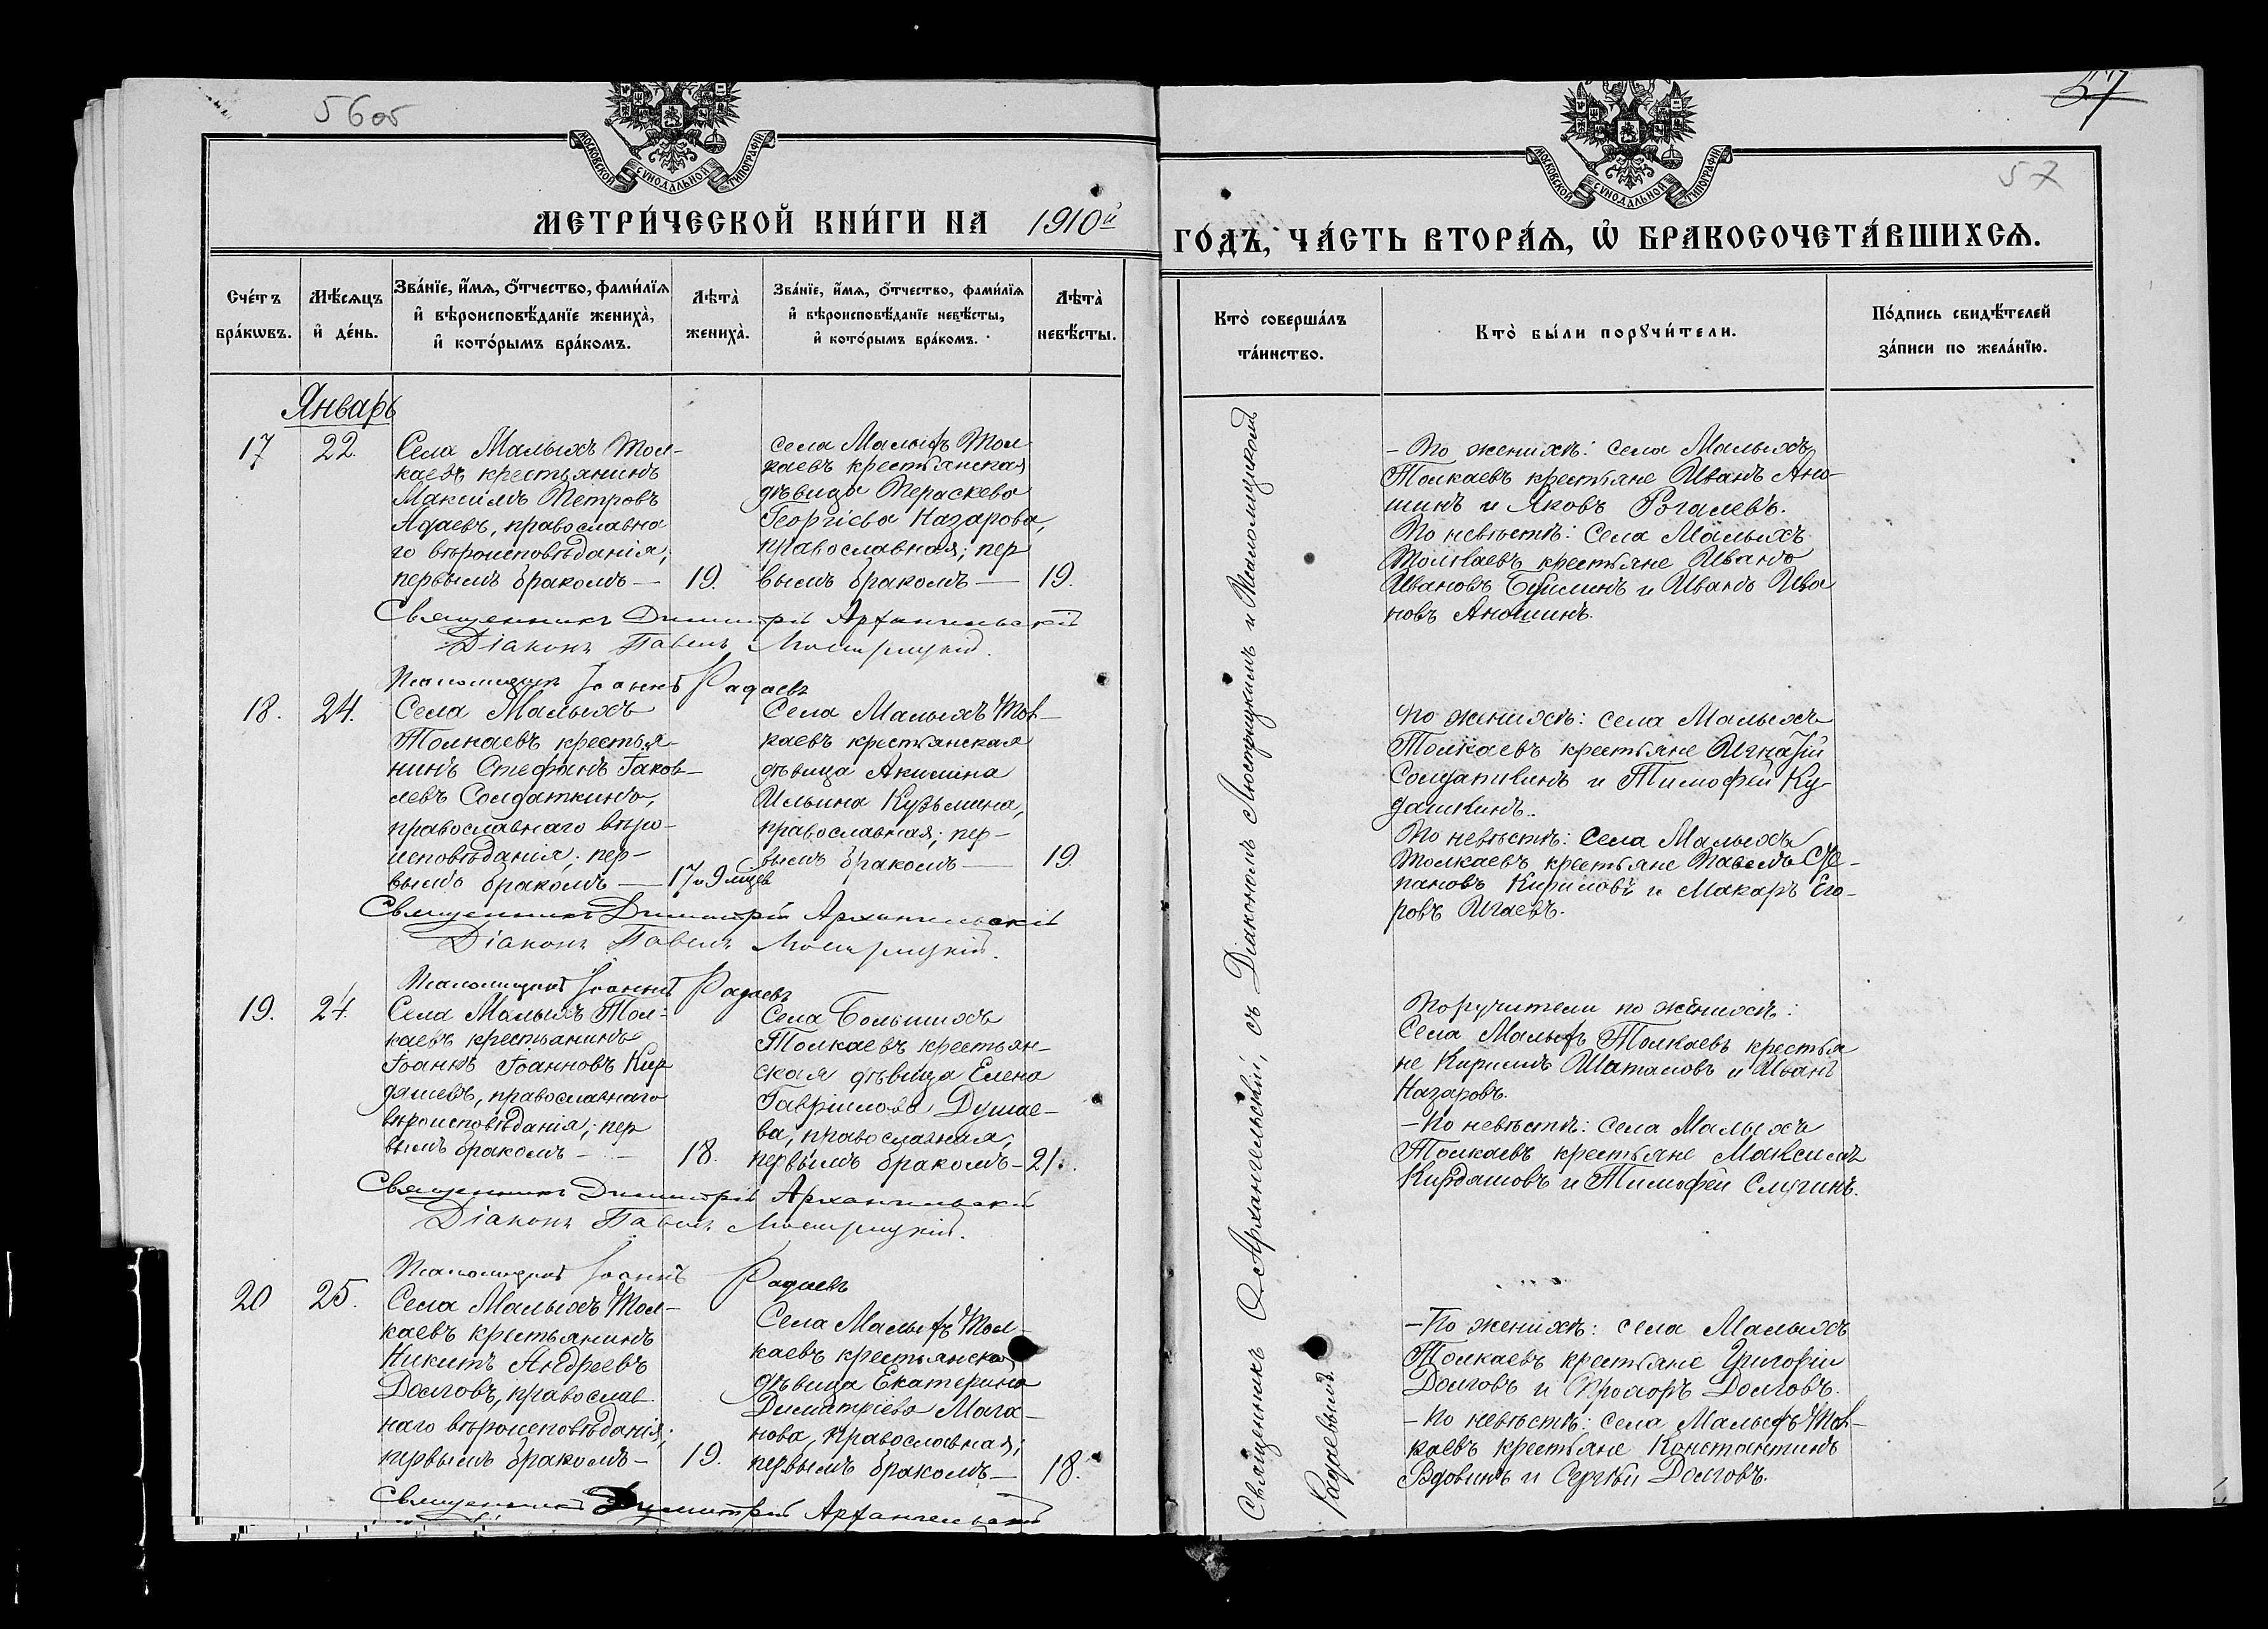 56об
МОСКОВСКОЙ СѴНОДАЛЬНОЙ ТИПОГРАФІИ
МЕТРИ́ЧЕСКОЙ КНИ́ГИ НА 1910й
Сче́тъ бра́кѡвъ.
Мѣ́сѧцъ и҆ де́нь.
Зва́нїе, и҆́мѧ, ѻ҆́тчество, фами́лїѧ
и҆ вѣроисповѣ́данїе жениха̀,
и҆ кото́рымъ бра́комъ.
Лѣта̀ жениха̀.
Зва́нїе, и҆́мѧ, ѻ҆́тчество, фами́лїѧ
и҆ вѣроисповѣ́данїе невѣ́сты,
и҆ кото́рымъ бра́комъ.
Лѣта̀ невѣ́сты.
Январь
17
22.
Села Малыхъ Тол-
каевъ крестьянинъ
Максимъ Петровъ
Адаевъ, православна
го вѣроисповѣданія;
первымъ бракомъ —
19.
села Малыхъ Тол
каевъ крестьянская
дѣвица Пераскева
Георгіева Назарова,
православная; пер
вымъ бракомъ —
19.
Священникъ Димитрій Архангельскій
Діаконъ Павелъ Люстрицкій.
Псаломщикъ Іоаннъ Радаевъ
18.
24.
Села Малыхъ
Толкаевъ крестья-
нинъ Стефанъ Іаков-
левъ Солдаткинъ,
православнаго вѣро-
исповѣданія; пер-
вымъ бракомъ —
17 и 9 мцев
Села Малыхъ Тол-
каевъ крестьянская
дѣвица Акилина
Ильина Кузьмина,
православная; пер-
вымъ бракомъ —
19.
Священникъ Димитрій Архангельскій
Діаконъ Павелъ Люстрицкій.
Псаломщикъ Іоаннъ Радаевъ
19.
24.
Села Малыхъ Тол-
каевъ крестьянинъ
Іоаннъ Іоанновъ Кир
дяшевъ, православнаго
вѣроисповѣданія; пер
вымъ бракомъ —
18.
Села Большихъ
Толкаевъ крестьян-
ская дѣвица Елена
Гавріилова Думае-
ва, православная,
первымъ бракомъ —
21.
Священникъ Димитрій Архангельскій
Діаконъ Павелъ Люстрицкій.
Псаломщикъ Іоаннъ Радаевъ
20
25.
Села Малыхъ Тол-
каевъ крестьянинъ
Никитъ Андреевъ
Долговъ, православ
наго вѣроисповѣданія;
первымъ бракомъ —
19.
Села Малыхъ Тол-
каевъ крестьянская
дѣвица Екатерина
Димитріева Мага-
нова, православная;
первымъ бракомъ —
18.
Священникъ Димитрій Архангельскій
57
57
МОСКОВСКОЙ СѴНОДАЛЬНОЙ ТИПОГРАФІИ
ГО́ДЪ, ЧА́СТЬ ВТОРА́Ѧ, Ѡ҆ БРАКОСОЧЕТА́ВШИХСѦ.
Кто̀ соверша́лъ
та́инство.
Кто̀ бы́ли порꙋчи́тели.
По́дпись свидѣ́телей
за́писи по жела́нїю.
Священникъ Д. Архангельскій, съ Діакономъ Люстрицкимъ и Псаломщикомъ
Радаевымъ.
- По женихѣ: села Малыхъ
Толкаевъ крестьяне Иванъ Ано-
шинъ и Яковъ Рогалевъ.
По невѣстѣ: Села Малыхъ
Толкаевъ крестьяне Иванъ
Ивановъ и Иванъ Ива
новъ Аношинъ.
По женихѣ: села Малыхъ
Толкаевъ крестьяне Игнатій
Солдаткинъ и Тимофей Ку-
дашкинъ.
По невѣстѣ: Села Малыхъ
Толкаевъ крестьяне Павелъ Сте-
пановъ Кириловъ и Макаръ Его-
ровъ Игаевъ.
Поручители по женихѣ:
Села Малыхъ Толкаевъ крестья
не Кирилъ Шаталовъ и Иванъ
Назаровъ.
- По невѣстѣ: села Малыхъ
Толкаевъ крестьяне Максимъ
Кирдяшовъ и Тимофей Слугинъ.
- По женихѣ: села Малыхъ
Толкаевъ крестьяне Григорій
Долговъ и Прохоръ Долговъ.
- По невѣстѣ: села Малыхъ Тол-
каевъ крестьяне Константинъ
Вдовинъ и Сергѣй Долговъ.